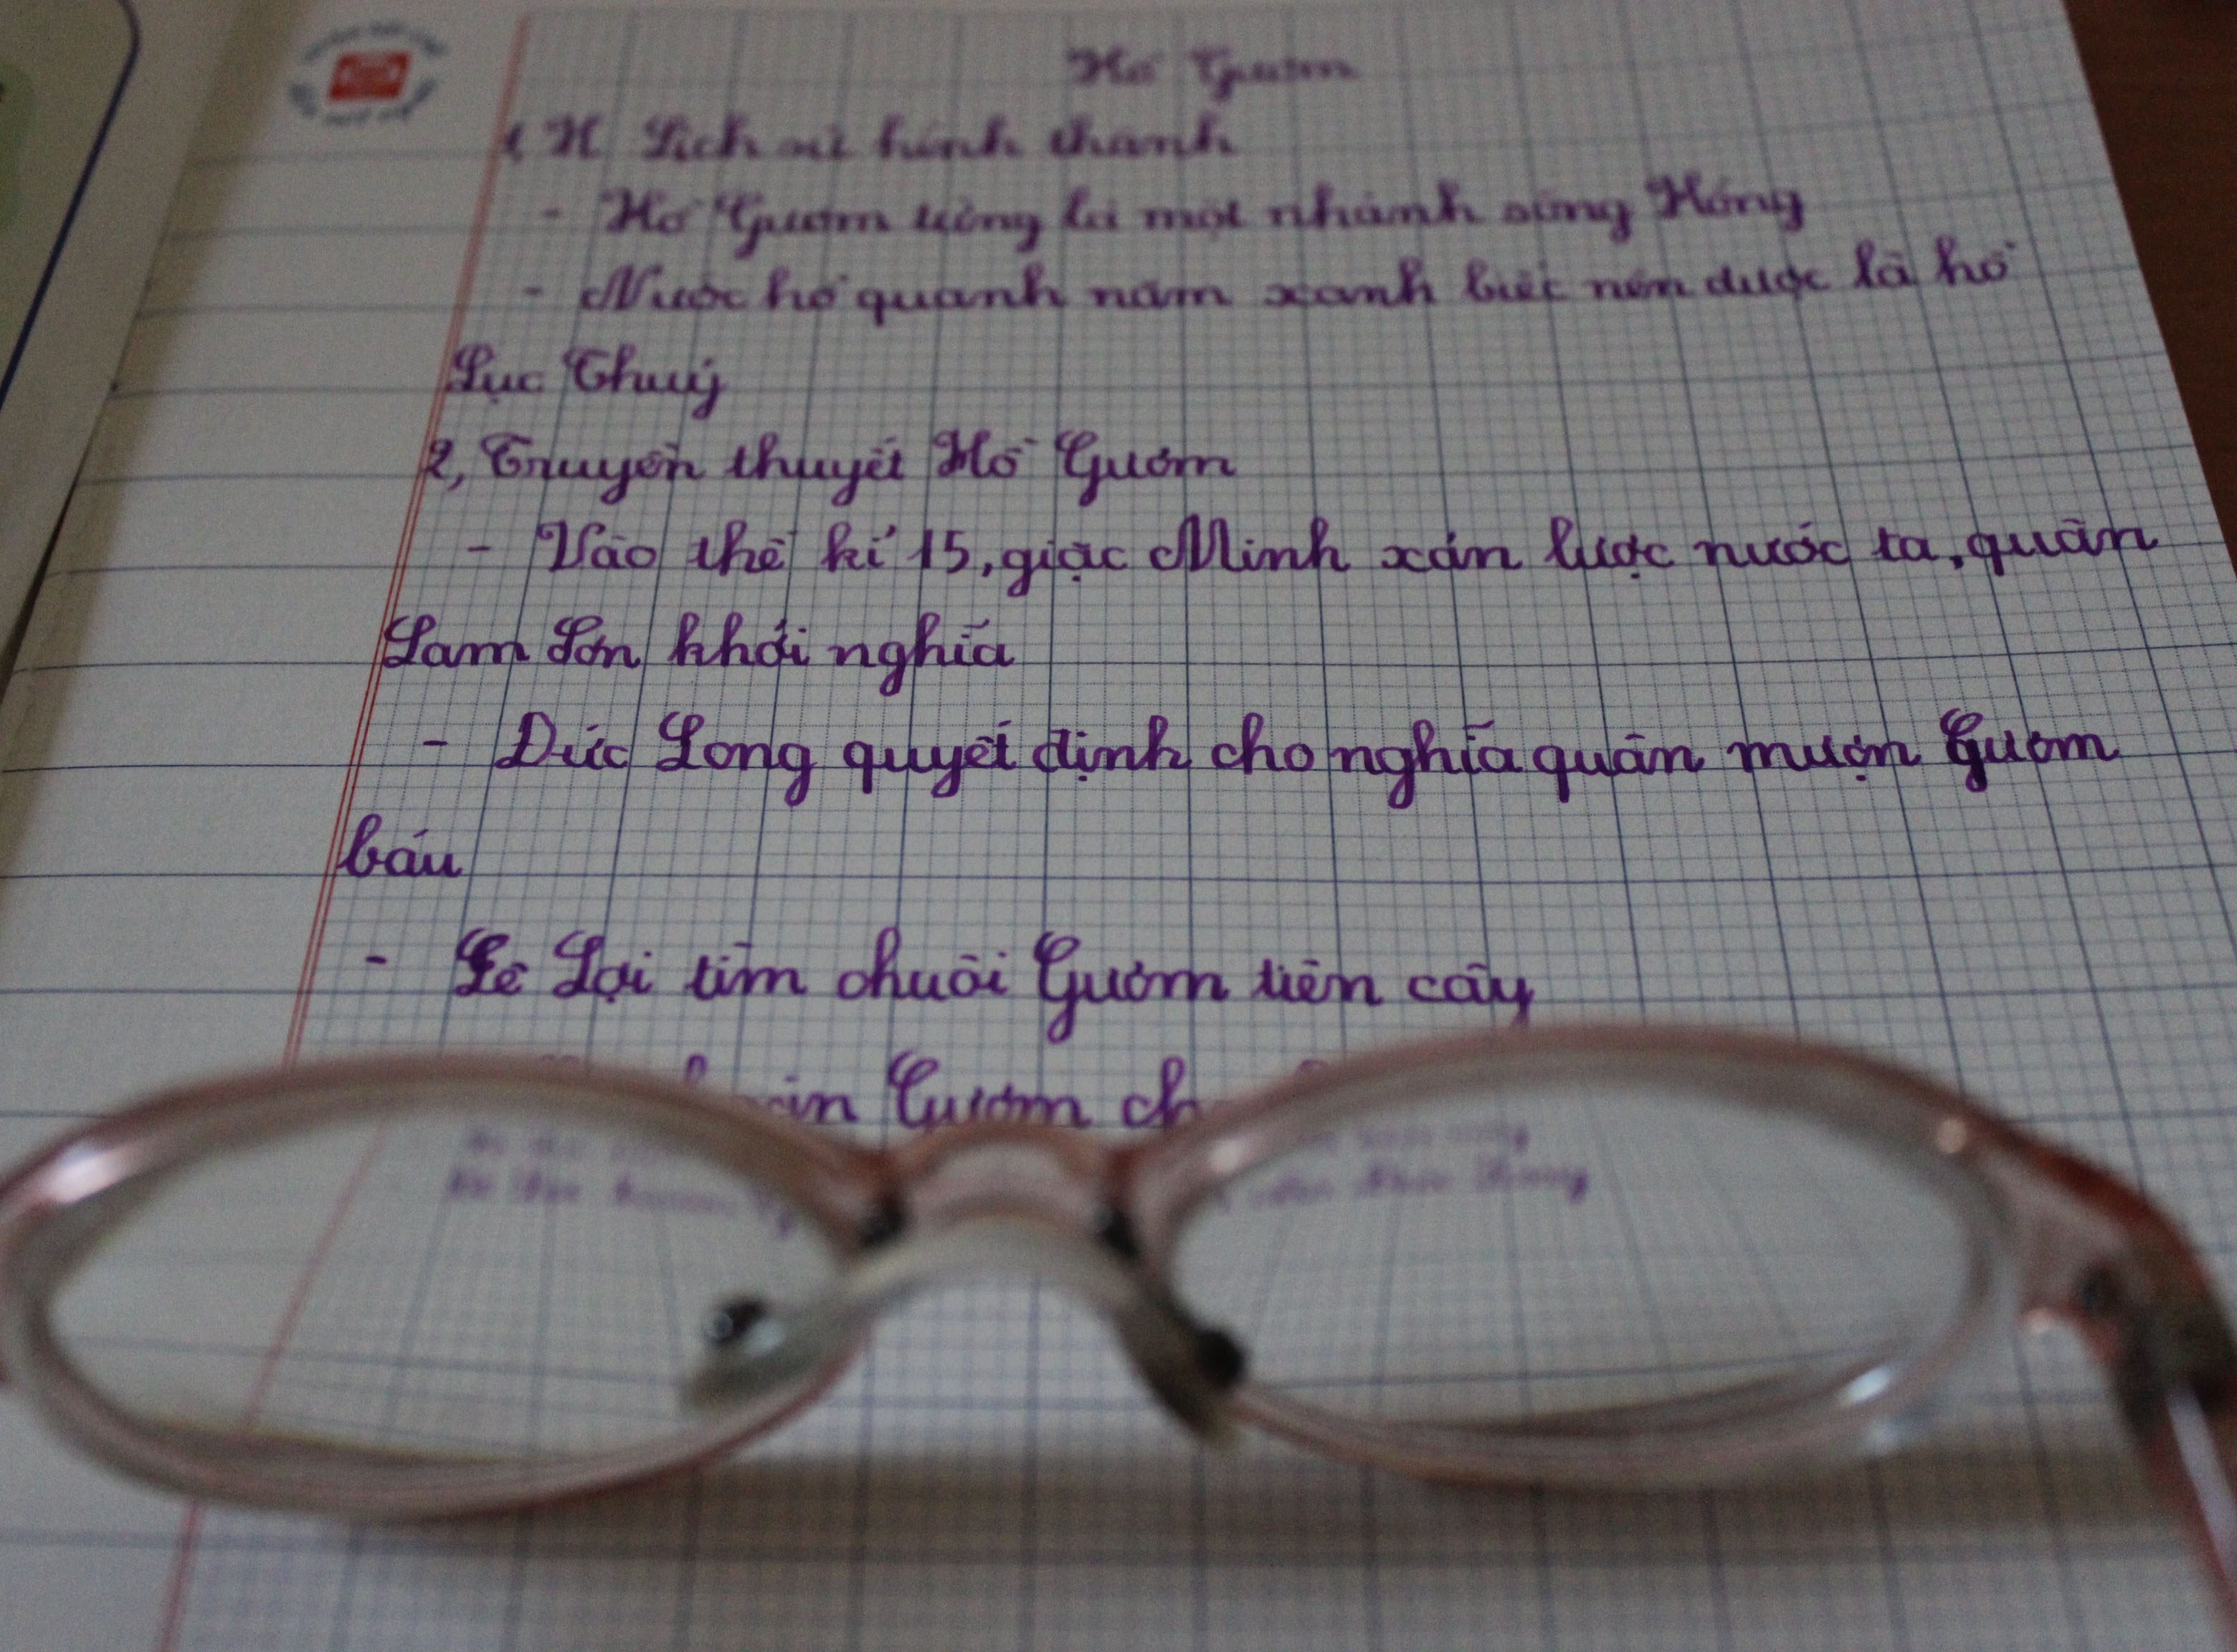 Hồ Gươm
1, H Lịch sử hình thành
- Hồ Gươm từng là một nhánh sông Hồng
- Nước hồ quanh năm xanh biếc nên được là hồ
Lục Thuỷ
2, Truyền thuyết Hồ Gươm
- Vào thế kỉ 15, giặc Minh xân lược nước ta, quân
Lam Sơn khởi nghĩa
- Đức Long quyết định cho nghĩa quân mượn Gươm
báu
- Lê Lợi tìm chuôi Gươm trên cây
Gươm